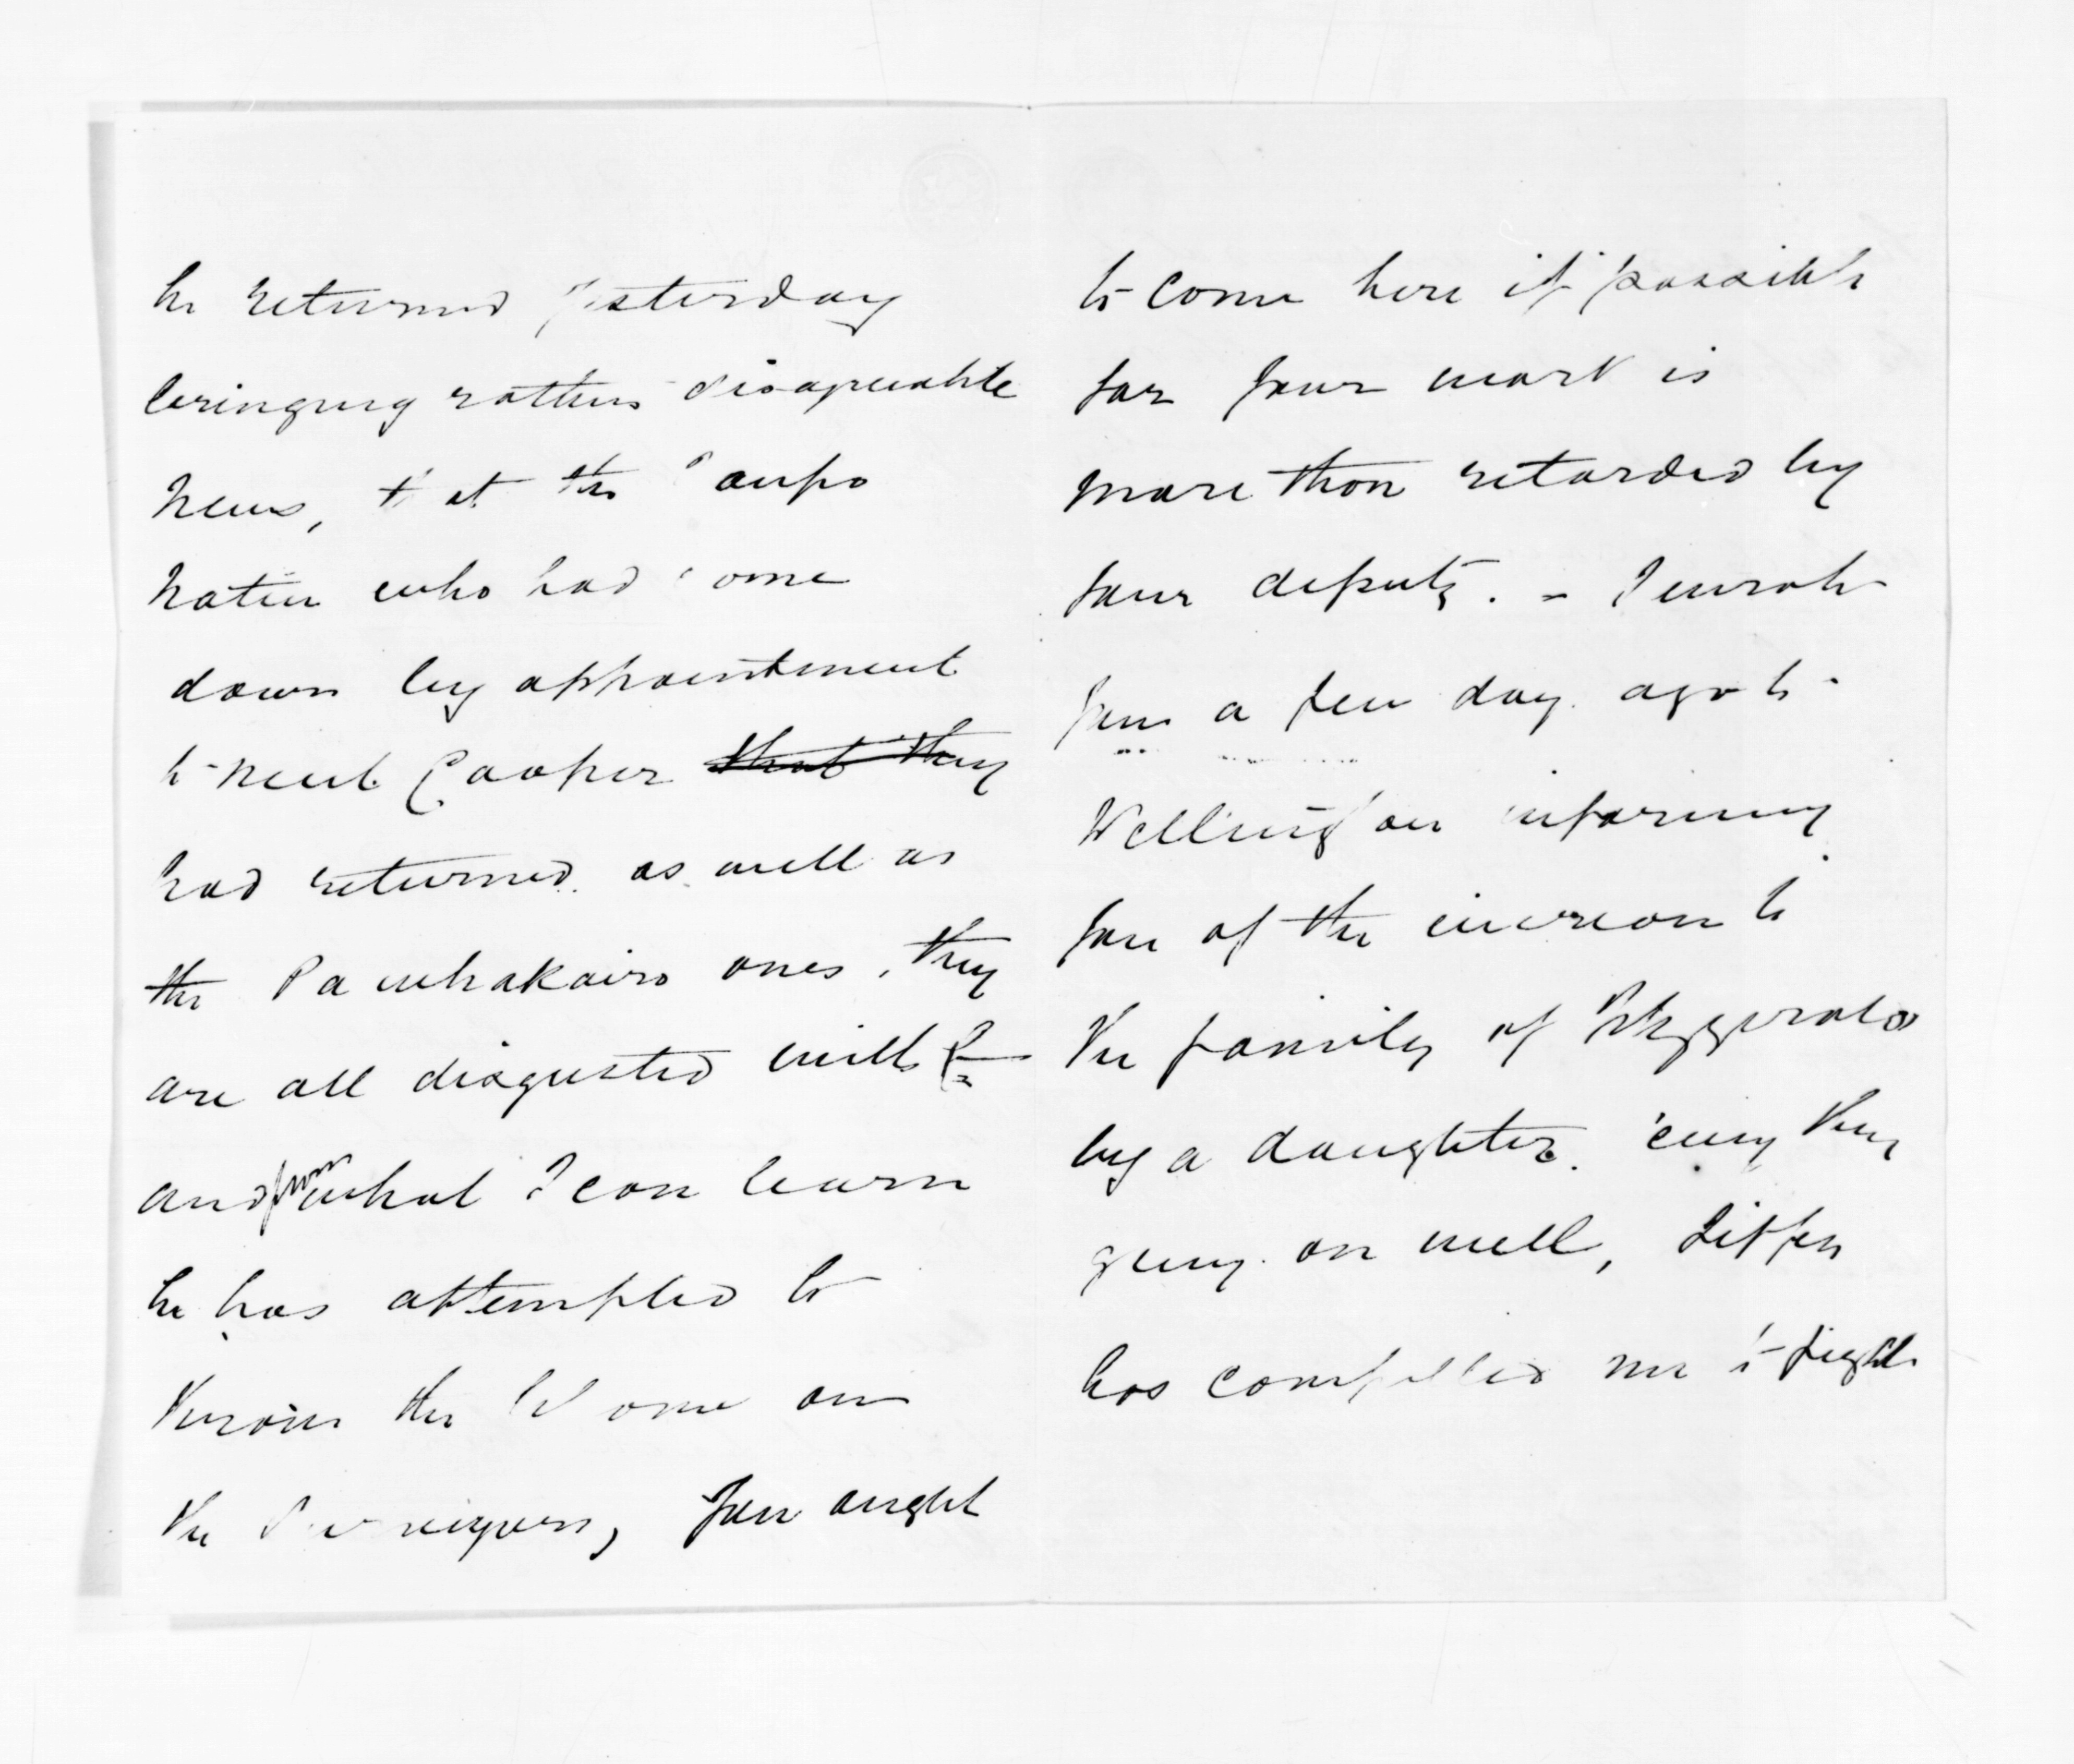 he returned yesterday
bringing rather disagreeable
news, that the Taupo
natives who had come
down by appointment
to meet Cooper that they
had returned as well as
the Pawhakairo ones, they
are all disgusted with C
and from what I can learn
he has attempted to
throw the blame on
the Sovereign, you ought
to come here if possible
for your work is
more than retarded by
your deputy. - I wrote
you a few days ago to
Wellington informing
you of the increase to
the family of Fitzgeralds
by a daughter. They
going on well, Tiffen
has compelled me to fight